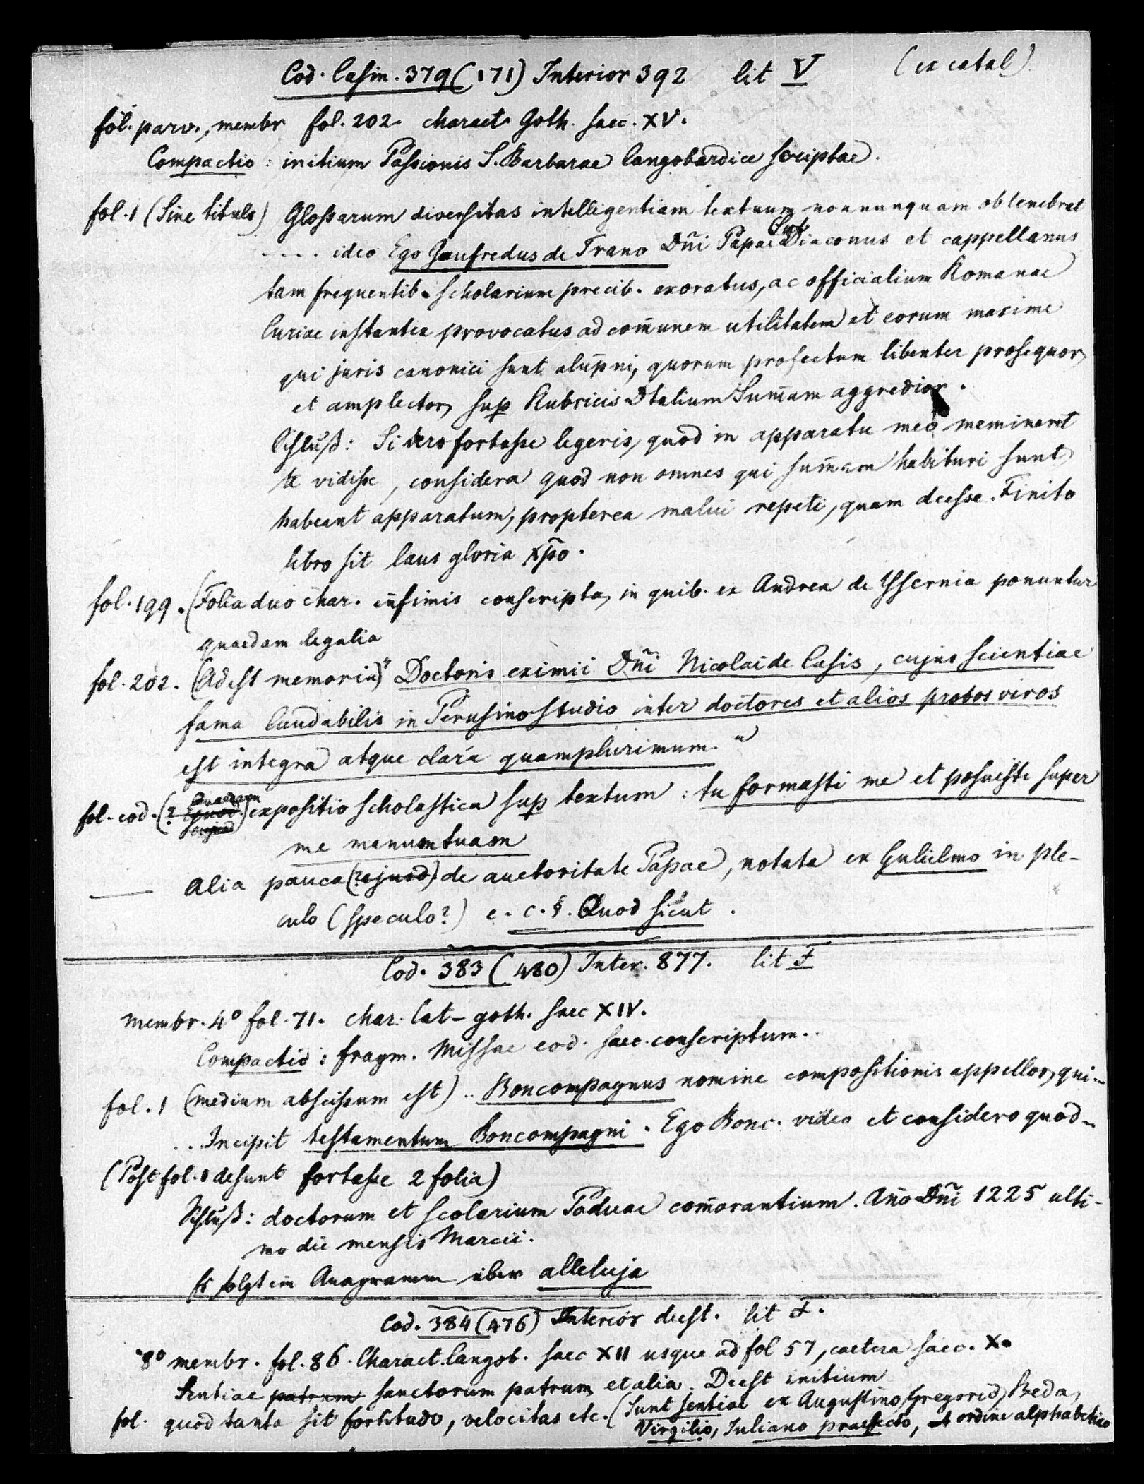 Cod. Casin. 379 (171) Interior 392 lit V (ex catal)
fol. parv., membr fol. 202 charact Goth. saec. XV.
Compactio: initium Passionis S. Barbarae langobardice scriptae.
fol. 1 (Sine titulo) Glossarum diversitas intelligentiam textuum nonnunquam obtenebrat
.... ideo Ego Gaufredus de Trano Dñi Papae Sub Diaconus et cappellanus
tam frequentib. scholarium precib. exoratus, ac officialium Romanae
Curiae instantia provocatus ad com̄unem utilitatem et eorum maxime
qui juris canonici sunt alum̄ni, quorum profectum libenter prosequor,
et amplector, sup Rubricis Dtalium Sum̄am aggredior.
Schluß: Si vero fortasse legeris, quod in apparatu meo memineret
te vidisse, considera quod non omnes qui sum̄am habituri sunt,
habeant apparatum, propterea malui repeti, quam deesse. Finito
libro sit laus gloria Xp̄o.
fol. 199. (Folia duo char. infimis conscripta, in quib. ex Andrea de Yssernia ponuntur
quaedam legalia
fol. 202. (Adest memoria) "Doctoris eximii Dñi Nicolai de Casis, cujus scientiae
fama laudabilis in Perusino studio inter doctores et alios probos viros
est integra atque clara quamplurimum."
fol. eod. (? Quaedam) expositio scholastica sup textum: tu formasti me et posuisti super
me manum tuam
—— alia pauca de auctoritate Papae, notata ex Gulielmo in ple-
culo (speculo?) e. c. §. Quod sicut.
Cod. 383 (480) Inter. 877. lit F
membr. 4° fol. 71. char. lat-goth. saec XIV.
Compactio: fragm. Missae eod. saec. conscriptum..
fol. 1 (medium abscissum est) .. Boncompagnus nomine compositionis appellor, qui...
.. Incipit testamentum Boncompagni. Ego Bonc. video et considero quod..
(Post fol. 1 desunt fortasse 2 folia)
Schluß: doctorum et scolarium Paduae com̄orantium. Año Dñi 1225 ulti-
mo die mensis Marcii.
Es folgt ein Anagramm über alleluja
Cod. 384 (476) Interior deest. lit F.
8° membr. fol. 86. Charact. langob. saec XII usque ad fol 57, caetera saec. X.
Sentiae patrum sanctorum patrum, et alia. Deest initium
fol. quod tanta sit fortitudo, velocitas etc. (Sunt sentiae ex Augustino, Gregorio, Beda,
Virgilio, Juliano praefecto, ordine alphabetico